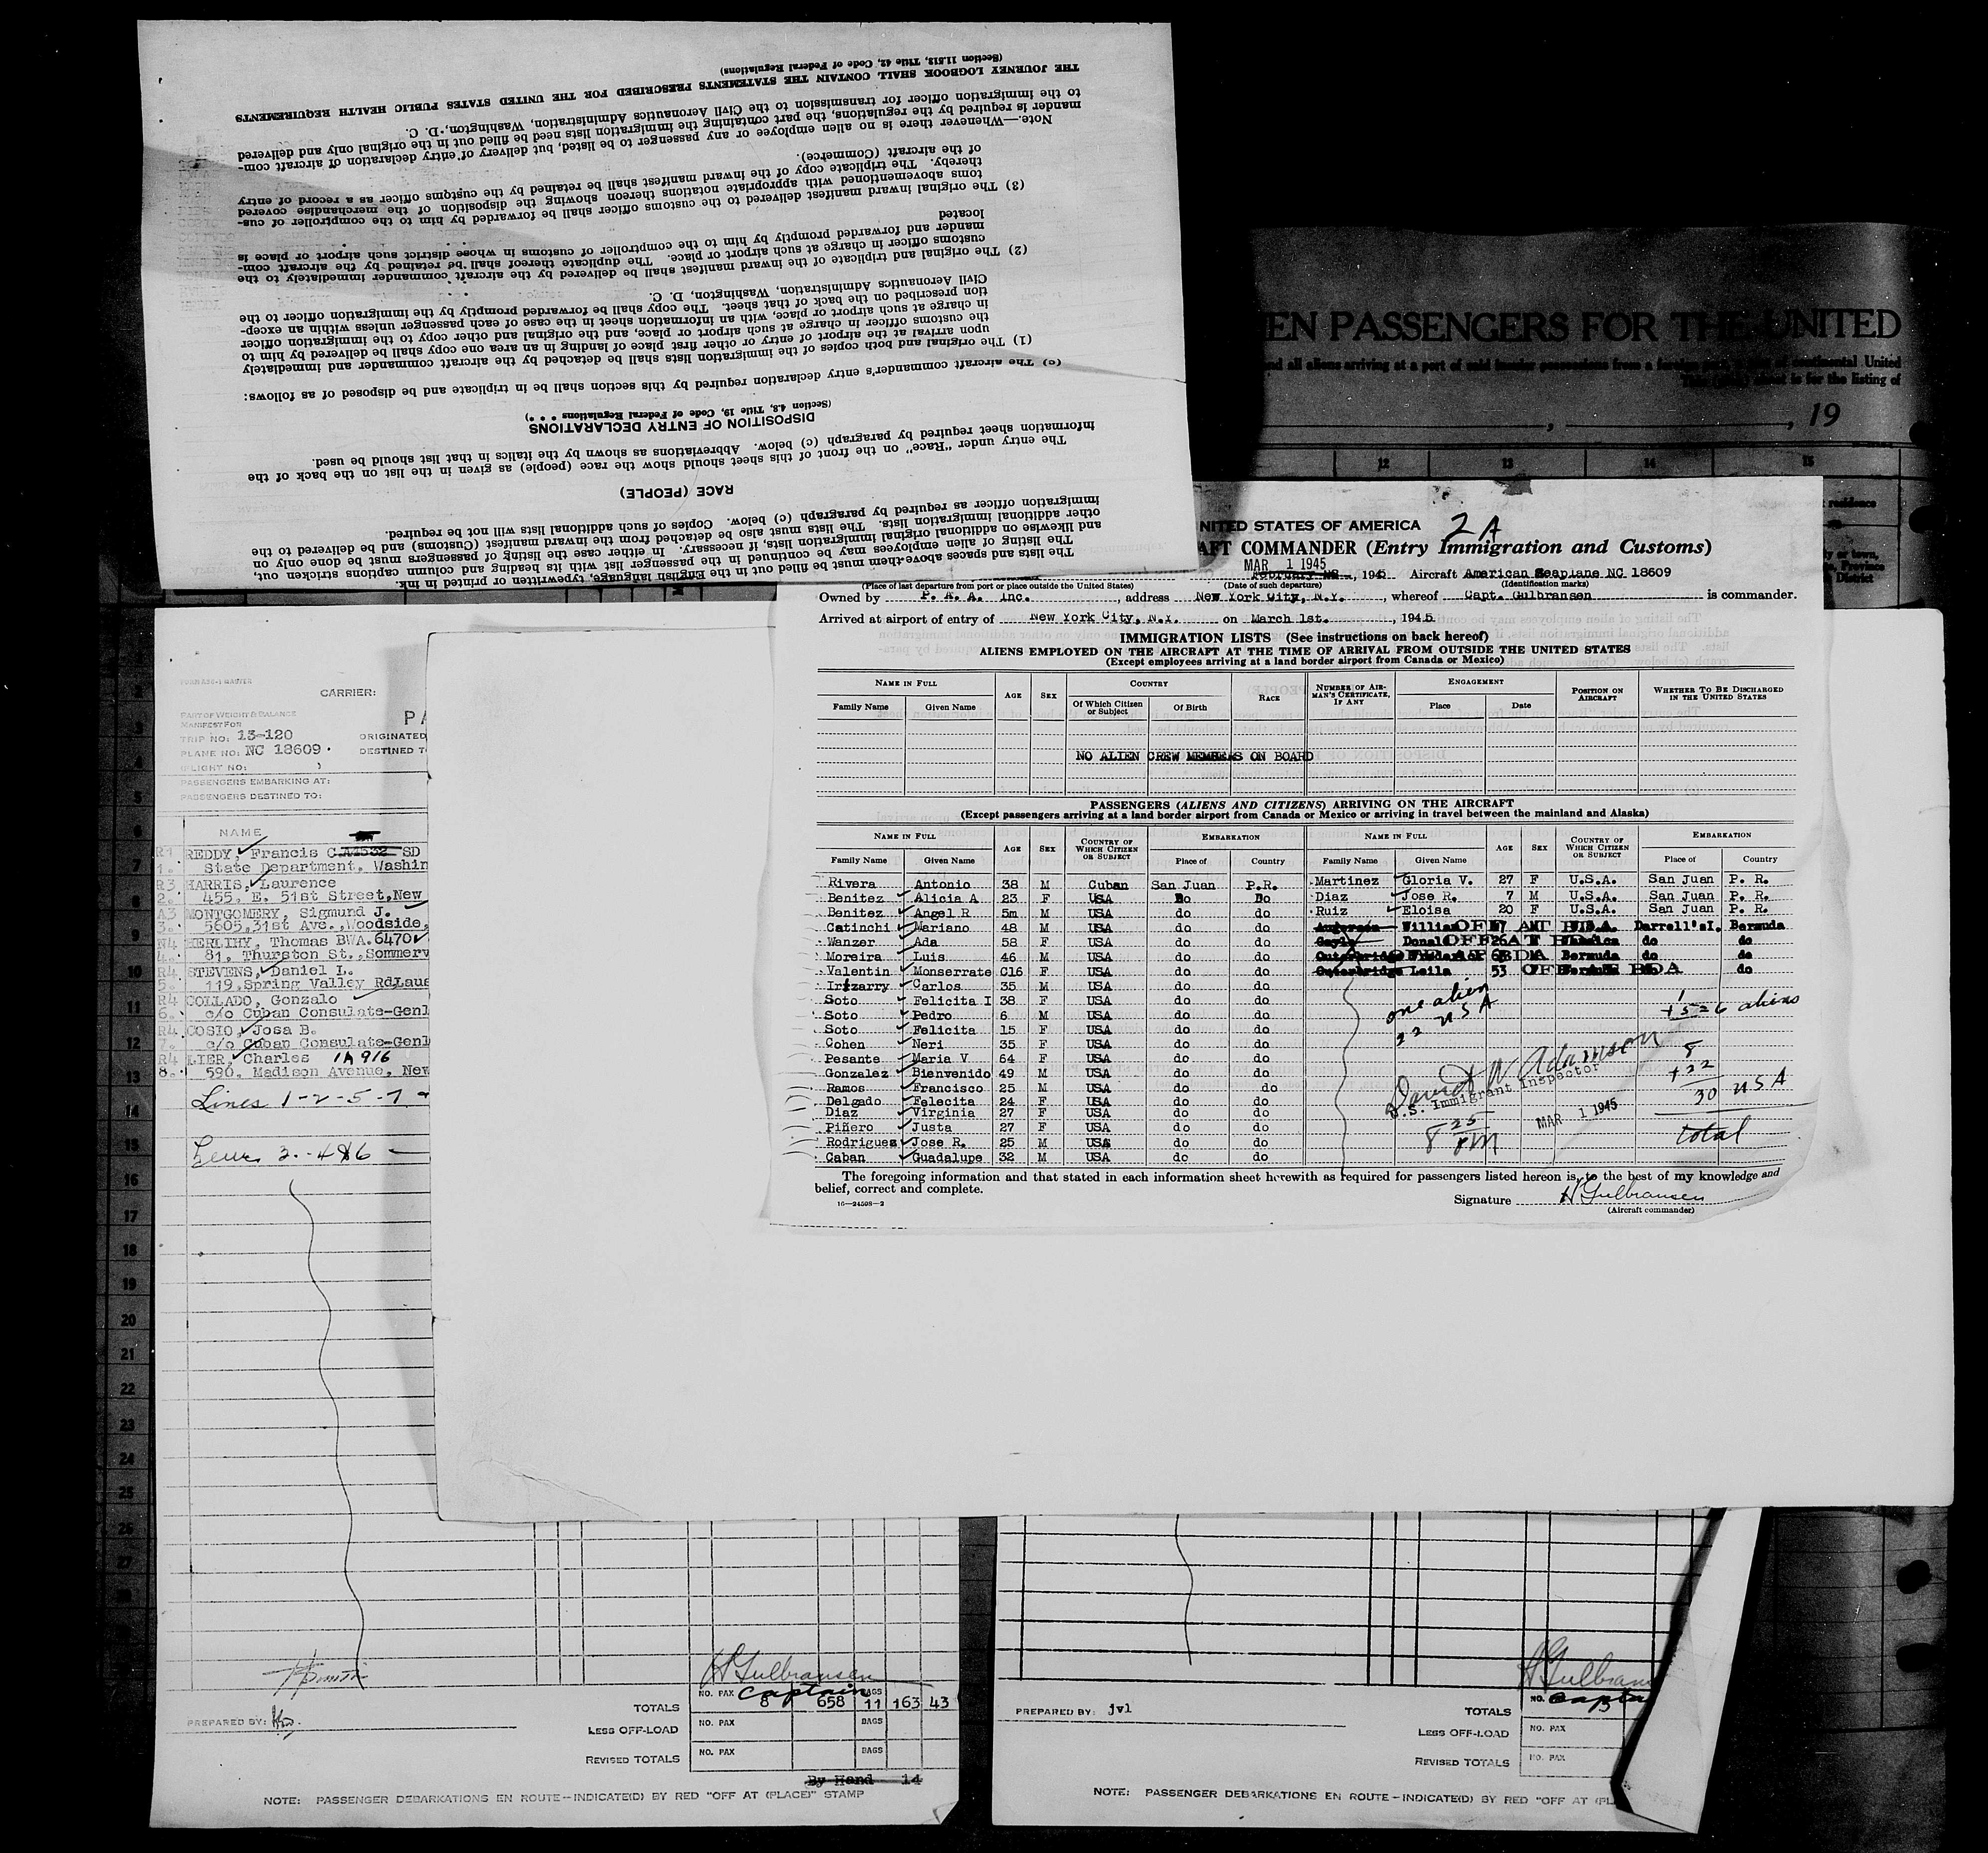 The lists and spaces above them must be filled out in the English language, typewritten or printed in ink.
The listing of alien employees may be continued in the passenger list with its heading and column captions stricken out,
and likewise on additional original immigration lists, if necessary. In either case the listing of passengers must be done only on
other additional immigration lists. The lists must also be detached from the inward manifest (Customs) and be delivered to the
immigration officer as required by paragraph (c) below. Copies of such additional lists will not be required.
RACE (PEOPLE)
The entry under "Race" on the front of this sheet should show the race (people) as given in the list on the back of the
information sheet required by paragraph (c) below. Abbreviations as shown by the italics in that list should be used.
DISPOSITION OF ENTRY DECLARATIONS
(Section 4.3, Title 19, Code of Federal Regulations * * *)
(c) The aircraft commander's entry declaration required by this section shall be in triplicate and be disposed of as follows:
(1) The original and both copies of the immigration lists shall be detached by the aircraft commander and immediately
upon arrival at the airport of entry or other first place of landing in an area one copy shall be delivered by him to
the customs officer in charge at such airport or place, and the original and other copy to the immigration officer
in charge at such airport or place, with an information sheet in the case of each passenger unless within an excep-
tion prescribed on the back of that sheet. The copy shall be forwarded promptly by the immigration officer to the
Civil Aeronautics Administration, Washington, D. C.
(2) The original and triplicate of the inward manifest shall be delivered by the aircraft commander immediately to the
customs officer in charge at such airport or place. The duplicate thereof shall be retained by the aircraft com-
mander and forwarded promptly by him to the comptroller of customs in whose district such airport or place is
located
(3) The original inward manifest delivered to the customs officer shall be forwarded by him to the comptroller of cus-
toms abovementioned with appropriate notations thereon showing the disposition of the merchandise covered
thereby. The triplicate copy of the inward manifest shall be retained by the customs officer as a record of entry
of the aircraft (Commerce).
Note.—Whenever there is no alien employee or any passenger to be listed, but delivery of entry declaration of aircraft com-
mander is required by the regulations, the part containing the immigration lists need be filled out in the original only and delivered
to the immigration officer for transmission to the Civil Aeronautics Administration, Washington, D. C.
THE JOURNEY LOGBOOK SHALL CONTAIN THE STATEMENTS PRESCRIBED FOR THE UNITED STATES PUBLIC HEALTH REQUIREMENTS
(Section 11.513, Title 42, Code of Federal Regulations)
EN PASSENGERS FOR THE UNITED
and all aliens arriving at a port of said insular possessions from a
continental United
This sheet is for the listing of
, 19
12 13 14 15
NITED STATES OF AMERICA 2A
AFT COMMANDER (Entry Immigration and Customs)
MAR 1 1945
February , 1945 Aircraft American Seaplane NC 18609
(Place of last departure from port or place outside the United States) (Date of such departure) (Identification marks)
Owned by P. A. A. Inc. , address New York City, N.Y. , whereof Capt. Gulbransen is commander.
Arrived at airport of entry of New York City, N.Y. on March 1st. , 1945
IMMIGRATION LISTS (See instructions on back hereof)
ALIENS EMPLOYED ON THE AIRCRAFT AT THE TIME OF ARRIVAL FROM OUTSIDE THE UNITED STATES
(Except employees arriving at a land border airport from Canada or Mexico)
NAME IN FULL AGE SEX COUNTRY RACE NUMBER OF AIRMAN'S CERTIFICATE, IF ANY ENGAGEMENT POSITION ON AIRCRAFT WHETHER TO BE DISCHARGED IN THE UNITED STATES
Family Name Given Name Of Which Citizen or Subject Of Birth Place Date
NO ALIEN CREW MEMBERS ON BOARD
PASSENGERS (ALIENS AND CITIZENS) ARRIVING ON THE AIRCRAFT
(Except passengers arriving at a land border airport from Canada or Mexico or arriving in travel between the mainland and Alaska)
NAME IN FULL AGE SEX COUNTRY OF WHICH CITIZEN OR SUBJECT EMBARKATION NAME IN FULL AGE SEX COUNTRY OF WHICH CITIZEN OR SUBJECT EMBARKATION
Family Name Given Name Place of Country Family Name Given Name Place of Country
Rivera Antonio 38 M Cuban San Juan P.R. Martinez Gloria V. 27 F U.S.A. San Juan P. R.
Benitez Alicia A 23 F USA Do Do Diaz Jose R. 7 M U.S.A. San Juan P. R.
Benitez Angel R 5m M USA do do Ruiz Eloisa 20 F U.S.A. San Juan P. R.
Catinchi Mariano 48 M USA do do Anderson William OFF AT BDA Darrell's I. Bermuda
Wanzer Ada 58 F USA do do Gayle Donal OFF AT Jamaica do do
Moreira Luis 46 M USA do do Outerbridge 63 M Bermuda do do
Valentin Monserrate C16 F USA do do Outerbridge Leila 53 OFF AT BDA do
Irizarry Carlos 35 M USA do do
Soto Felicita I 38 F USA do do one alien
Soto Pedro 6 M USA do do 22 USA 1 + 5 = 6 aliens
Soto Felicita 15 F USA do do
Cohen Neri 35 F USA do do
Pesante Maria V 64 F USA do do David W Adamson 8
Gonzalez Bienvenido 49 M USA do do U.S. Immigrant Inspector +22
Ramos Francisco 25 M USA do do 30 USA
Delgado Felecita 24 F USA do do
Diaz Virginia 27 F USA do do MAR 1 1945
Piñero Justa 27 F USA do do 8 25 PM total
Rodriguez Jose R. 25 M USA do do
Caban Guadalupe 32 M USA do do
The foregoing information and that stated in each information sheet herewith as required for passengers listed hereon is, to the best of my knowledge and
belief, correct and complete.
Signature H Gulbransen
16—24508—2 (Aircraft commander)
CARRIER:
PART OF WEIGHT & BALANCE
MANIFEST FOR PA
TRIP NO: 13-120 ORIGINATED
PLANE NO: NC 18609 DESTINED T
FLIGHT NO:
PASSENGERS EMBARKING AT:
PASSENGERS DESTINED TO:
NAME
R1 REDDY, Francis C. A4532 SD
1. State Department. Washin
R3 HARRIS, Laurence
2. 455, E. 51st Street, New
A3 MONTGOMERY, Sigmund J.
3. 5605, 31st Ave., Woodside,
N4 HERLIHY, Thomas BWA. 6470
4. 81, Thurston St., Sommerv
R4 STEVENS, Daniel L.
5. 119, Spring Valley Rd, Laus
R4 COLLADO, Gonzalo
6. c/o Cuban Consulate-Genl
R4 COSIO, Josa B.
7. c/o Cuban Consulate-Genl
R4 LIER, Charles 1A 916
8. 590, Madison Avenue, New
Lines 1-2-5-7
Lines 3-4&6
5
6
7
8
9
10
11
12
13
14
15
16
17
18
19
20
21
22
23
24
25
26
27
H Gulbransen
Captain
TOTALS NO. PAX 8 658 BAGS 11 163 43
PREPARED BY:
LESS OFF-LOAD NO. PAX BAGS
REVISED TOTALS NO. PAX BAGS
By Hand 14
NOTE: PASSENGER DEBARKATIONS EN ROUTE—INDICATE(D) BY RED "OFF AT (PLACE)" STAMP
H Gulbran
PREPARED BY: jvl
TOTALS NO. Capta
LESS OFF-LOAD NO. PAX
REVISED TOTALS NO. PAX
NOTE: PASSENGER DEBARKATIONS EN ROUTE—INDICATE(D) BY RED "OFF AT (PL